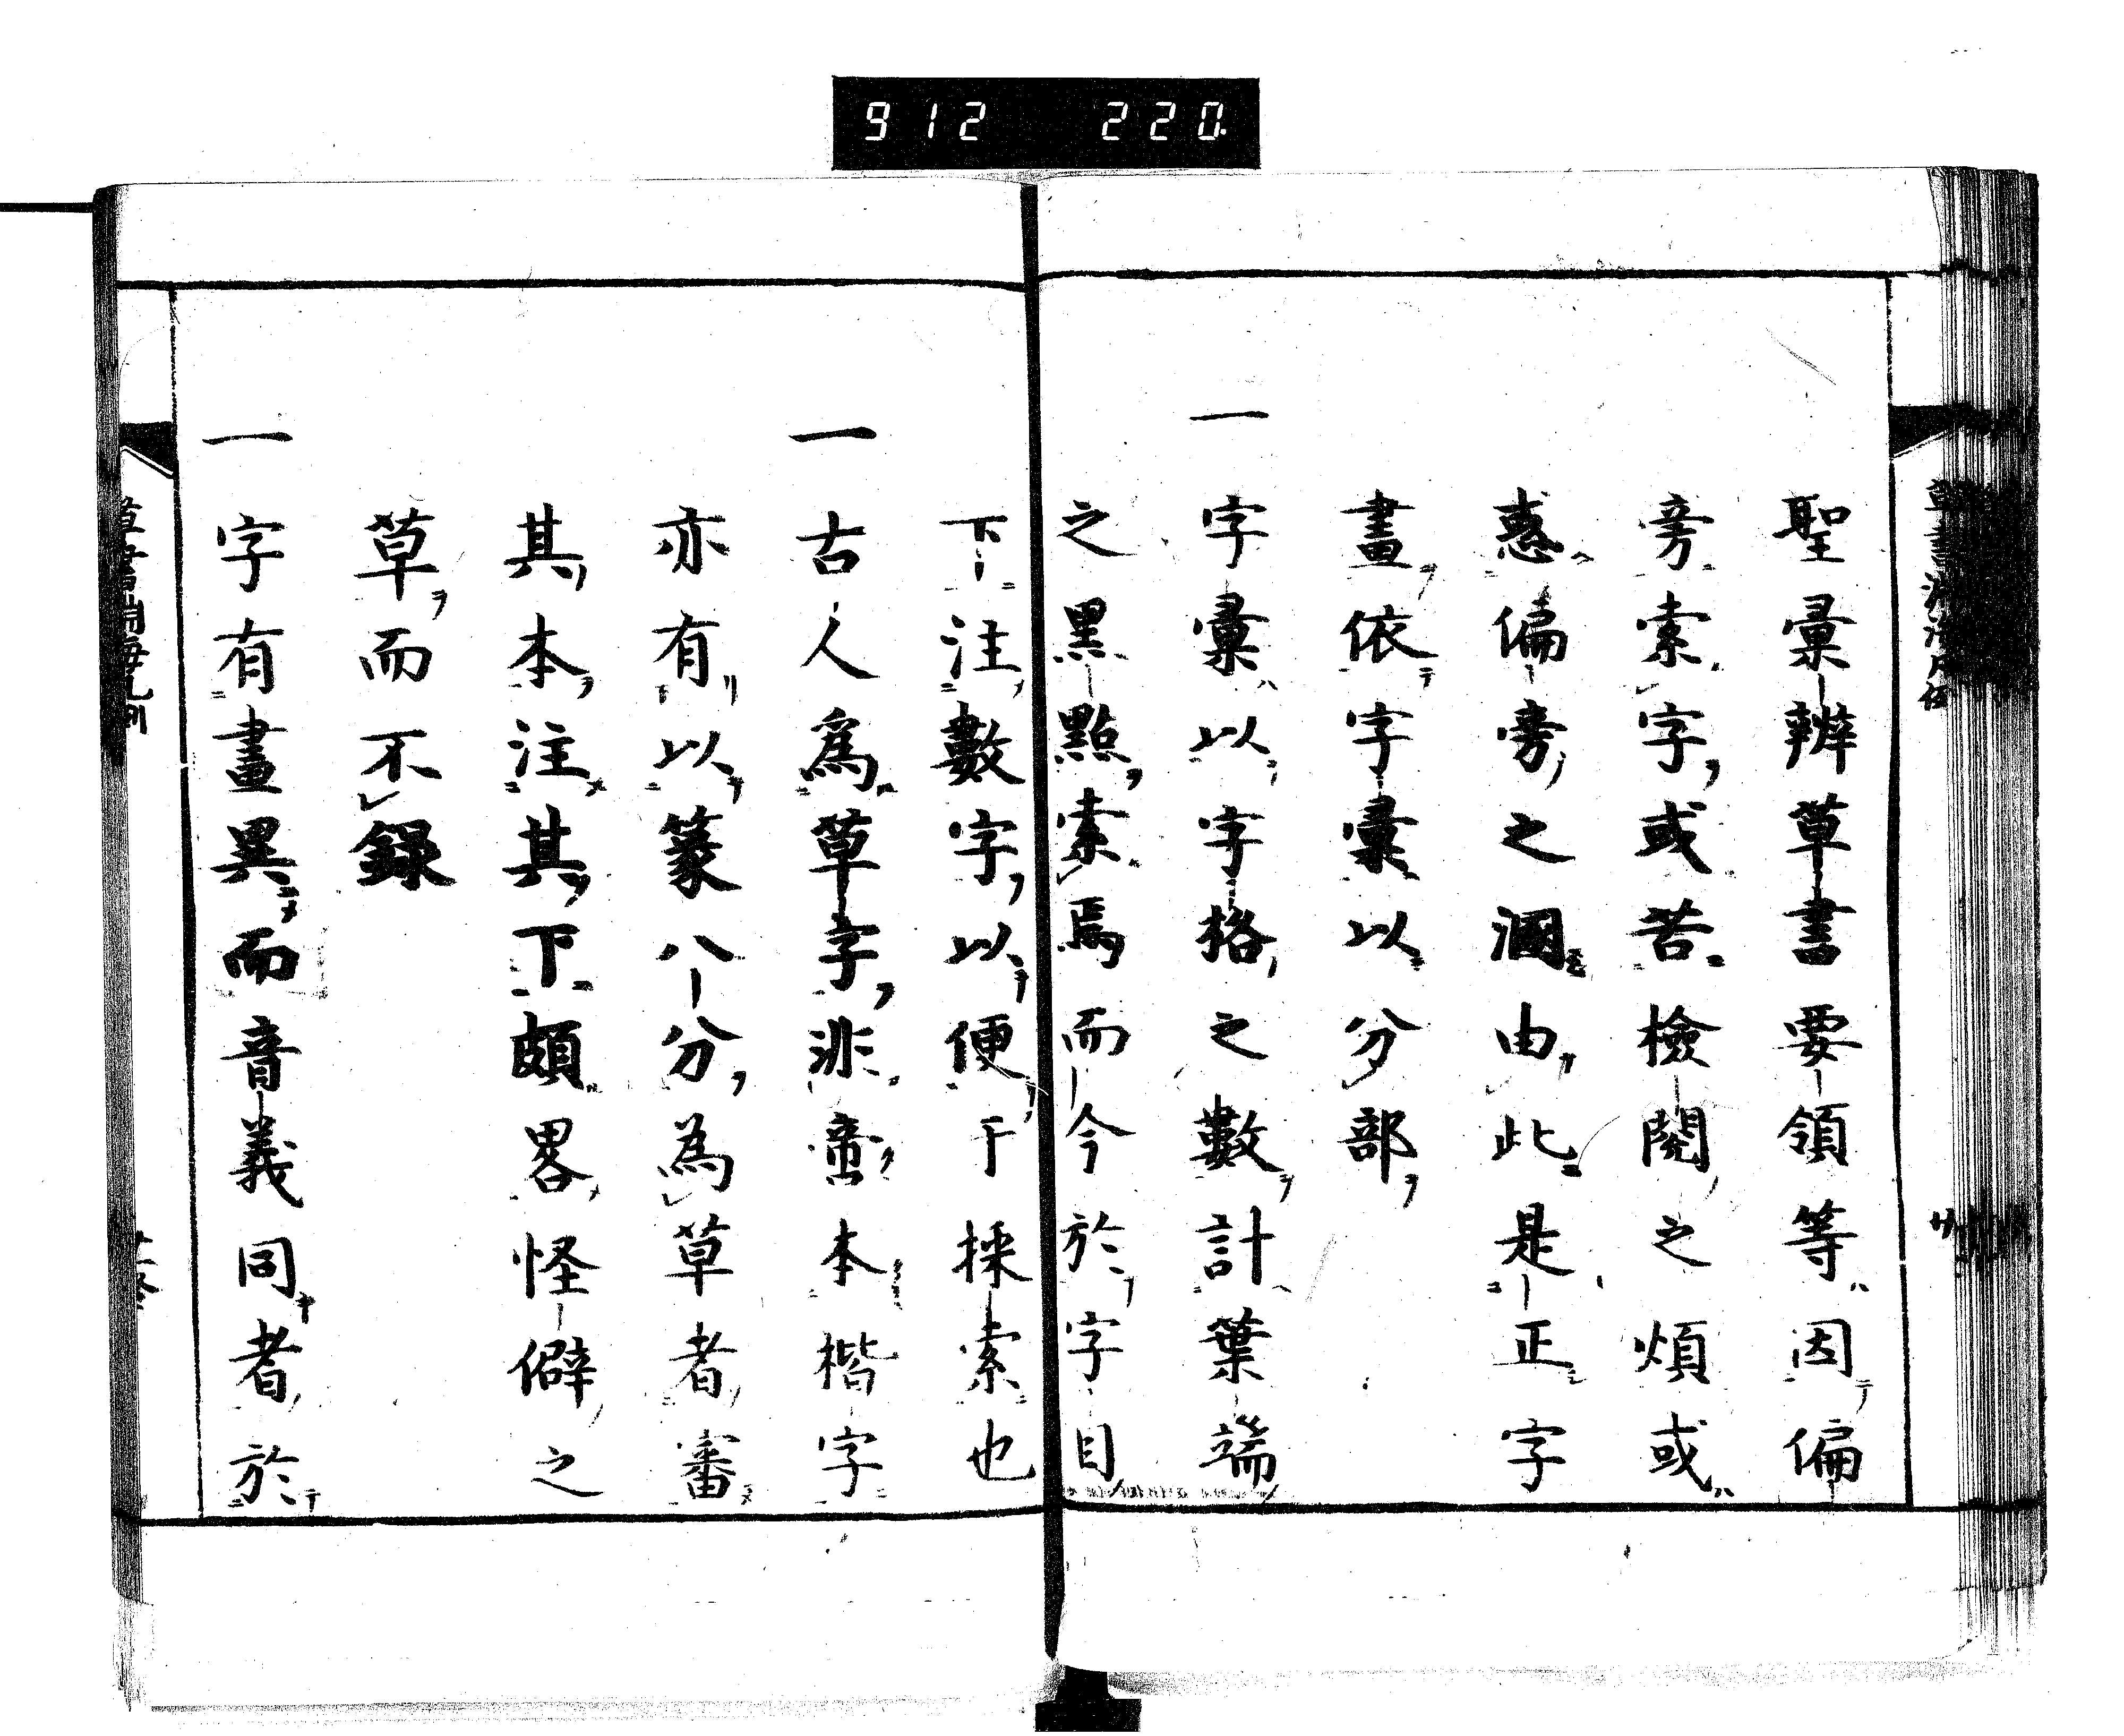 912 220
聖彙辨草書要領等因偏
旁索字或苦檢閱之煩或
惑偏旁之溷由此是正字
畫依字彙以分部
一字彙以字格之數計葉端
之黑點索焉而今於字目
下注數字以便于採索也
一古人爲草字非啻本楷字
亦有以篆八分為草者審
其本注其下頗畧怪僻之
草而不錄
一字有畫異而音義同者於